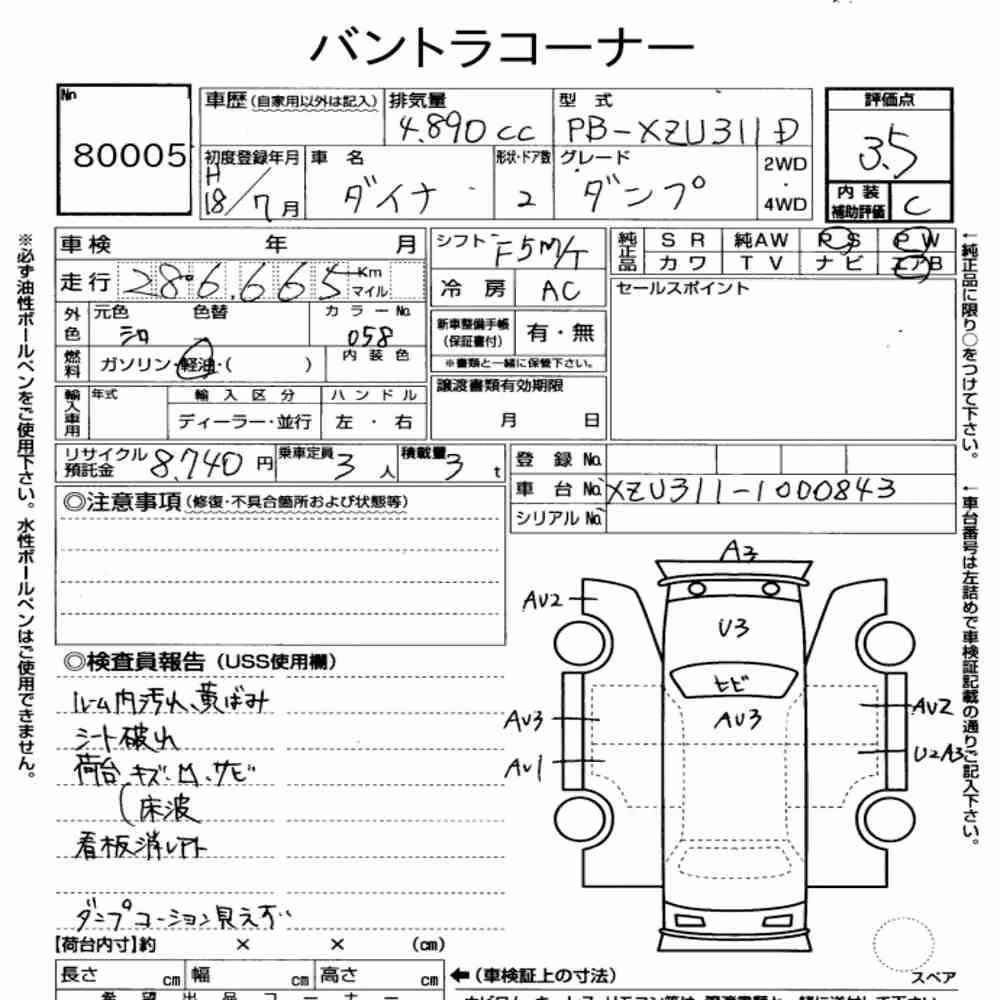 バントラコーナー
No
80005
車歴(自家用以外は記入)
排気量
4.890cc
型式
PB-XZU311D
評価点
3.5
初度登録年月
H18/7月
車名
ダイナ
形状・ドア数
2
グレード
ダンプ
2WD
・
4WD
内装
補助評価
C
車検 年 月
シフト F5M/T
純正品
SR 純AW PS PW
カワ TV ナビ エアB
走行 286.665 Km
マイル
冷房 AC
セールスポイント
外色
元色 シロ
色替
カラーNo. 058
新車整備手帳
(保証書付)
有・無
燃料
ガソリン・軽油・( )
内装色
※書類と一緒に保管下さい。
輸入車用
年式
輸入区分
ディーラー・並行
ハンドル
左・右
譲渡書類有効期限
月 日
リサイクル
預託金
8,740円
乗車定員 3人
積載量 3t
登録No.
車台No. XZU311-1000843
シリアルNo.
◎注意事項(修復・不具合箇所および状態等)
◎検査員報告(USS使用欄)
ルーム内汚れ、黄ばみ
シート破れ
荷台キズ・凹、サビ
(床波
看板消しアト
ダンプコーション見えず
A3
AU2
U3
ヒビ
AU3
AU3
AU2
AU1
U2A3
【荷台内寸】約 × × (cm)
長さ cm 幅 cm 高さ cm
←(車検証上の寸法)
スペア
希望出品コーナー
※必ず油性ボールペンをご使用下さい。水性ボールペンはご使用できません。
←純正品に限り○をつけて下さい。
←車台番号は左詰めで車検証記載の通りご記入下さい。